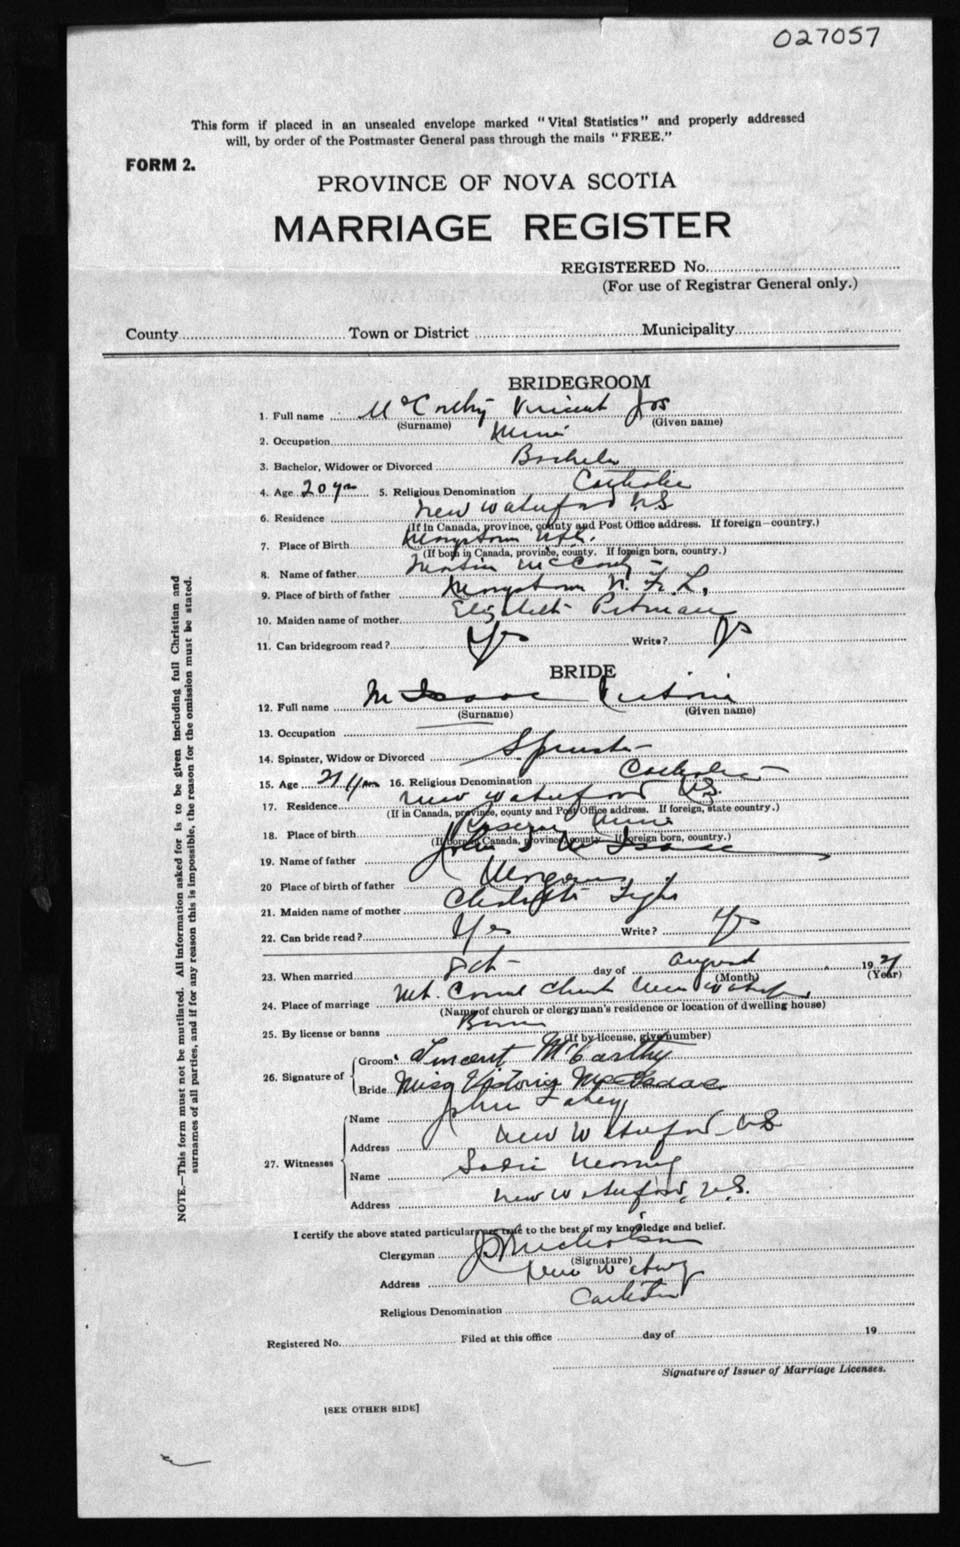 027057
This form if placed in an unsealed envelope marked "Vital Statistics" and properly addressed
will, by order of the Postmaster General pass through the mails "FREE."
FORM 2.
PROVINCE OF NOVA SCOTIA
MARRIAGE REGISTER
REGISTERED No.
(For use of Registrar General only.)
County Town or District Municipality
BRIDEGROOM
1. Full name Vincent Jos
(Surname) (Given name)
2. Occupation
3. Bachelor, Widower or Divorced Bachelor
4. Age 20 yrs 5. Religious Denomination Catholic
6. Residence New Waterford N.S
(If in Canada, province, county and Post Office address. If foreign—country.)
7. Place of Birth
(If born in Canada, province, county. If foreign born, country.)
8. Name of father
9. Place of birth of father N. F. L.
10. Maiden name of mother Elizabeth Pitman
11. Can bridegroom read? Yes Write? Yes
BRIDE
12. Full name McIsaac Victoria
(Surname) (Given name)
13. Occupation
14. Spinster, Widow or Divorced Spinster
15. Age 21 yrs 16. Religious Denomination Catholic
17. Residence New Waterford N.S.
(If in Canada, province, county and Post Office address. If foreign, state country.)
18. Place of birth Reserve Mines
(If born in Canada, province, county. If foreign born, country.)
19. Name of father John J McIsaac
20 Place of birth of father
21. Maiden name of mother
22. Can bride read? Yes Write? Yes
23. When married 8th day of August 1921
(Month) (Year)
24. Place of marriage Mt. Carmel Church New Waterford
(Name of church or clergyman's residence or location of dwelling house)
25. By license or banns Banns
(If by license, give number)
26. Signature of
Groom Vincent McCarthy
Bride Miss Victoria McIsaac
27. Witnesses
Name John Fahey
Address New Waterford N.S.
Name Sadie
Address New Waterford, N.S.
I certify the above stated particulars are true to the best of my knowledge and belief.
Clergyman Nicholson
(Signature)
Address New Waterford
Religious Denomination Catholic
Registered No. Filed at this office day of 19
Signature of Issuer of Marriage Licenses.
[SEE OTHER SIDE]
NOTE.—This form must not be mutilated. All information asked for is to be given including full Christian and
surnames of all parties, and if for any reason this is impossible, the reason for the omission must be stated.